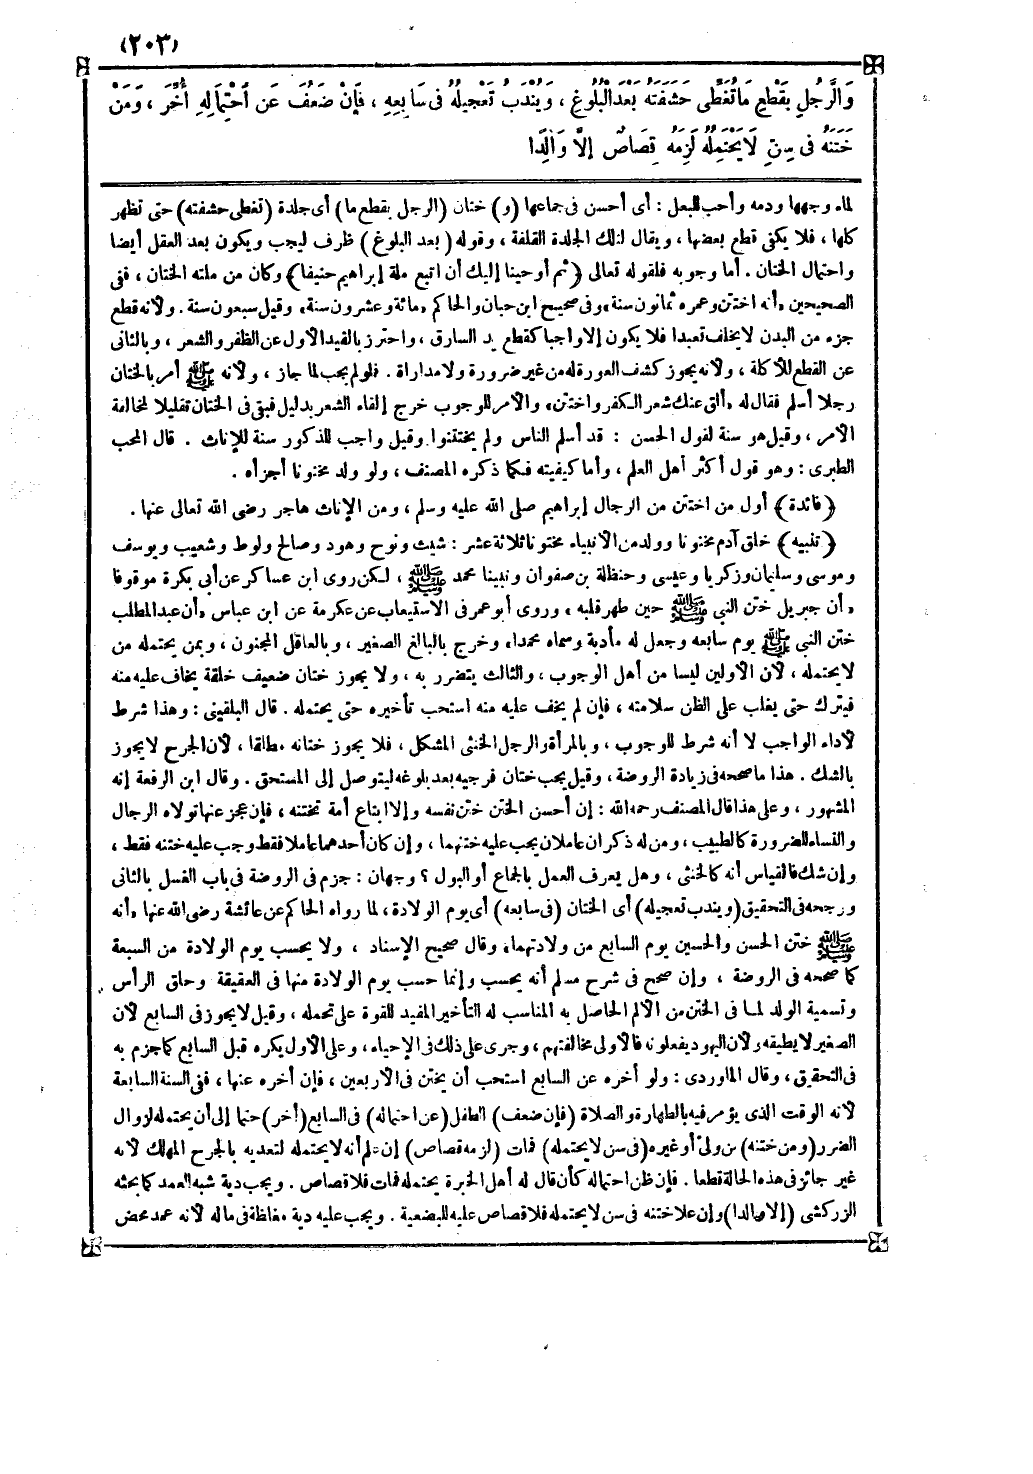 (٢٠٣)
وَالرَّجُلِ بِقَطْعِ مَا تُغَطِّى حَشَفَتَهُ بَعْدَ الْبُلُوغِ ، وَيُنْدَبُ تَعْجِيلُهُ فِى سَابِعِهِ ، فَإِنْ ضَعُفَ عَنِ احْتِمَالِهِ أُخِّرَ ، وَمَنْ
خَتَنَهُ فِى سِنٍّ لَا يَحْتَمِلُهُ لَزِمَهُ قِصَاصٌ إِلَّا وَالِدًا
لماء وجهها ودمه وأحب للبعل : أى أحسن فى جماعها (و) ختان (الرجل بقطع ما) أى جلدة (تغطى حشفته) حتى تظهر
كلها ، فلا يكفى قطع بعضها ، ويقال لتلك الجلدة القلفة ، وقوله (بعد البلوغ) ظرف ليجب ويكون بعد العقل أيضا
واحتمال الختان . أما وجوبه فلقوله تعالى (ثم أوحينا إليك أن اتبع ملة إبراهيم حنيفا) وكان من ملته الختان ، ففى
الصحيحين «أنه اختتن وعمره ثمانون سنة» وفى صحيح ابن حبان والحاكم «مائة وعشرون سنة» وقيل سبعون سنة . ولأنه قطع
جزء من البدن لا يخلف تعبدا فلا يكون إلا واجبا كقطع يد السارق ، واحترز بالقيد الأول عن الظفر والشعر ، وبالثانى
عن القطع للأكلة ، ولأنه يجوز كشف العورة له من غير ضرورة ولا مداراة . فلو لم يجب لما جاز ، ولأنه ﷺ أمر بالختان
رجلا أسلم فقال له «ألق عنك شعر الكفر واختتن» والأمر للوجوب خرج إلقاء الشعر بدليل فبقى فى الختان تقليلا لمخالفة
الأمر ، وقيل هو سنة لقول الحسن : قد أسلم الناس ولم يختتنوا وقيل واجب للذكور سنة للإناث . قال المحب
الطبرى : وهو قول أكثر أهل العلم ، وأما كيفيته فكما ذكره المصنف ، ولو ولد مختونا أجزأه .
(فائدة) أول من اختتن من الرجال إبراهيم صلى الله عليه وسلم ، ومن الإناث هاجر رضى الله تعالى عنها .
(تنبيه) خلق آدم مختونا وولد من الأنبياء مختونا ثلاثة عشر : شيث ونوح وهود وصالح ولوط وشعيب ويوسف
وموسى وسليمان وزكريا وعيسى وحنظلة بن صفوان ونبينا محمد ﷺ ، لكن روى ابن عساكر عن أبى بكرة موقوفا
«أن جبريل ختن النبى ﷺ حين طهر قلبه» وروى أبو عمر فى الاستيعاب عن عكرمة عن ابن عباس «أن عبد المطلب
ختن النبى ﷺ يوم سابعه وجعل له مأدبة وسماه محمدا» وخرج بالبالغ الصغير ، وبالعاقل المجنون ، وبمن يحتمله من
لا يحتمله ، لأن الأولين ليسا من أهل الوجوب ، والثالث يتضرر به ، ولا يجوز ختان ضعيف خلقة يخاف عليه منه
فيترك حتى يغلب على الظن سلامته ، فإن لم يخف عليه منه استحب تأخيره حتى يحتمله . قال البلقينى : وهذا شرط
لأداء الواجب لا أنه شرط للوجوب ، وبالمرأة والرجل الخنثى المشكل ، فلا يجوز ختانه مطلقا ، لأن الجرح لا يجوز
بالشك . هذا ما صححه فى زيادة الروضة ، وقيل يجب ختان فرجيه بعد بلوغه ليتوصل إلى المستحق . وقال ابن الرفعة إنه
المشهور ، وعلى هذا قال المصنف رحمه الله : إن أحسن الختن ختن نفسه وإلا ابتاع أمة تختنه ، فإن عجز عنها تولاه الرجال
والنساء للضرورة كالطبيب ، ومن له ذكران عاملان يجب عليه ختنهما ، وإن كان أحدهما عاملا فقط وجب عليه ختنه فقط ،
وإن شك فالقياس أنه كالخنثى ، وهل يعرف العمل بالجماع أو البول ؟ وجهان : جزم فى الروضة فى باب الغسل بالثانى
ورجحه فى التحقيق (ويندب تعجيله) أى الختان (فى سابعه) أى يوم الولادة ، لما رواه الحاكم عن عائشة رضى الله عنها «أنه
ﷺ ختن الحسن والحسين يوم السابع من ولادتهما» وقال صحيح الإسناد ، ولا يحسب يوم الولادة من السبعة
كما صححه فى الروضة ، وإن صحح فى شرح مسلم أنه يحسب وإنما حسب يوم الولادة منها فى العقيقة وحلق الرأس
وتسمية الولد لما فى الختن من الألم الحاصل به المناسب له التأخير المفيد للقوة على تحمله ، وقيل لا يجوز فى السابع لأن
الصغير لا يطيقه ولأن اليهود يفعلونه فالأولى مخالفتهم ، وجرى على ذلك فى الإحياء ، وعلى الأول يكره قبل السابع كما جزم به
فى التحقيق ، وقال الماوردى : ولو أخره عن السابع استحب أن يختن فى الأربعين ، فإن أخره عنها ، ففى السنة السابعة
لأنه الوقت الذى يؤمر فيه بالطهارة والصلاة (فإن ضعف) الطفل (عن احتماله) فى السابع (أخر) حتما إلى أن يحتمله لزوال
الضرر (ومن ختنه) من ولى أو غيره (فى سن لا يحتمله) فمات (لزمه قصاص) إن علم أنه لا يحتمله لتعديه بالجرح المهلك لأنه
غير جائز فى هذه الحالة قطعا . فإن ظن احتماله كأن قال له أهل الخبرة يحتمله فمات فلا قصاص . ويجب دية شبه العمد كما بحثه
الزركشى (إلا والدا) وإن علا ختنه فى سن لا يحتمله فلا قصاص عليه للبعضية . ويجب عليه دية مغلظة فى ماله لأنه عمد محض